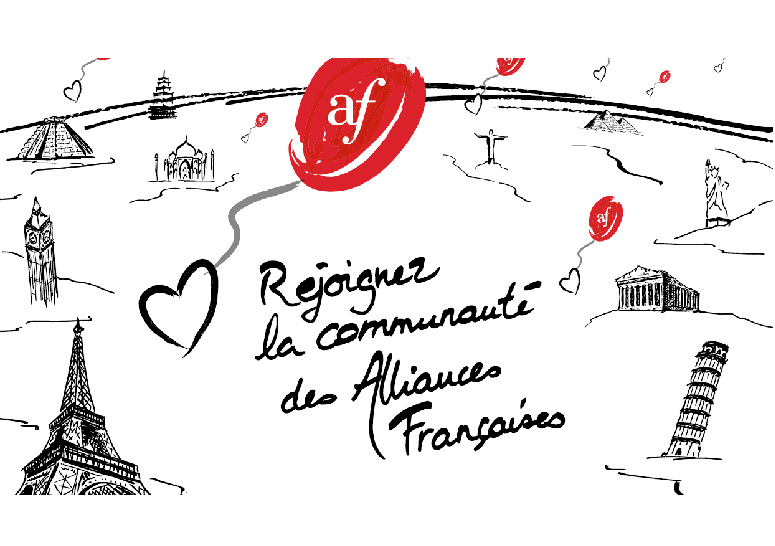 af
af
Rejoignez
la communauté
des Alliances
Françaises